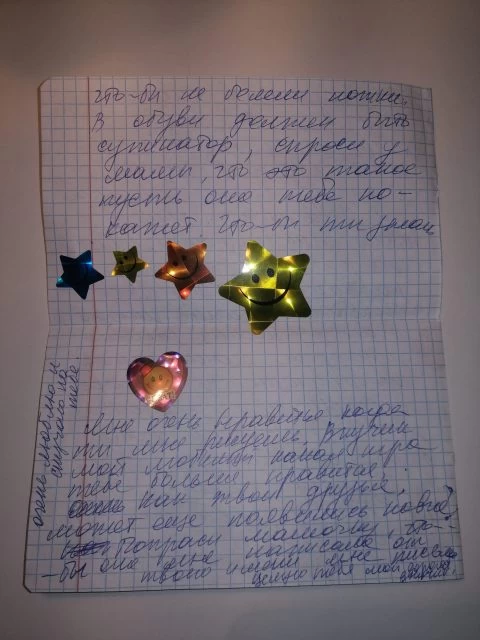 что-бы не болели ножки.
В обуви должен быть
супинатор, спроси у
мамы, что это такое
пусть она тебе по-
кажет. что-бы ты знал
Мне очень нравится когда
ты мне рисуешь. Внучек
мой любимый какая игра
тебе больше нравится?
как твои друзья,
может еще появились новые?
Попроси мамочку, что-
бы она мне написала от
твоего имени мне письмо
целую тебя мой дорогой
очень люблю и
скучаю по
тебе.